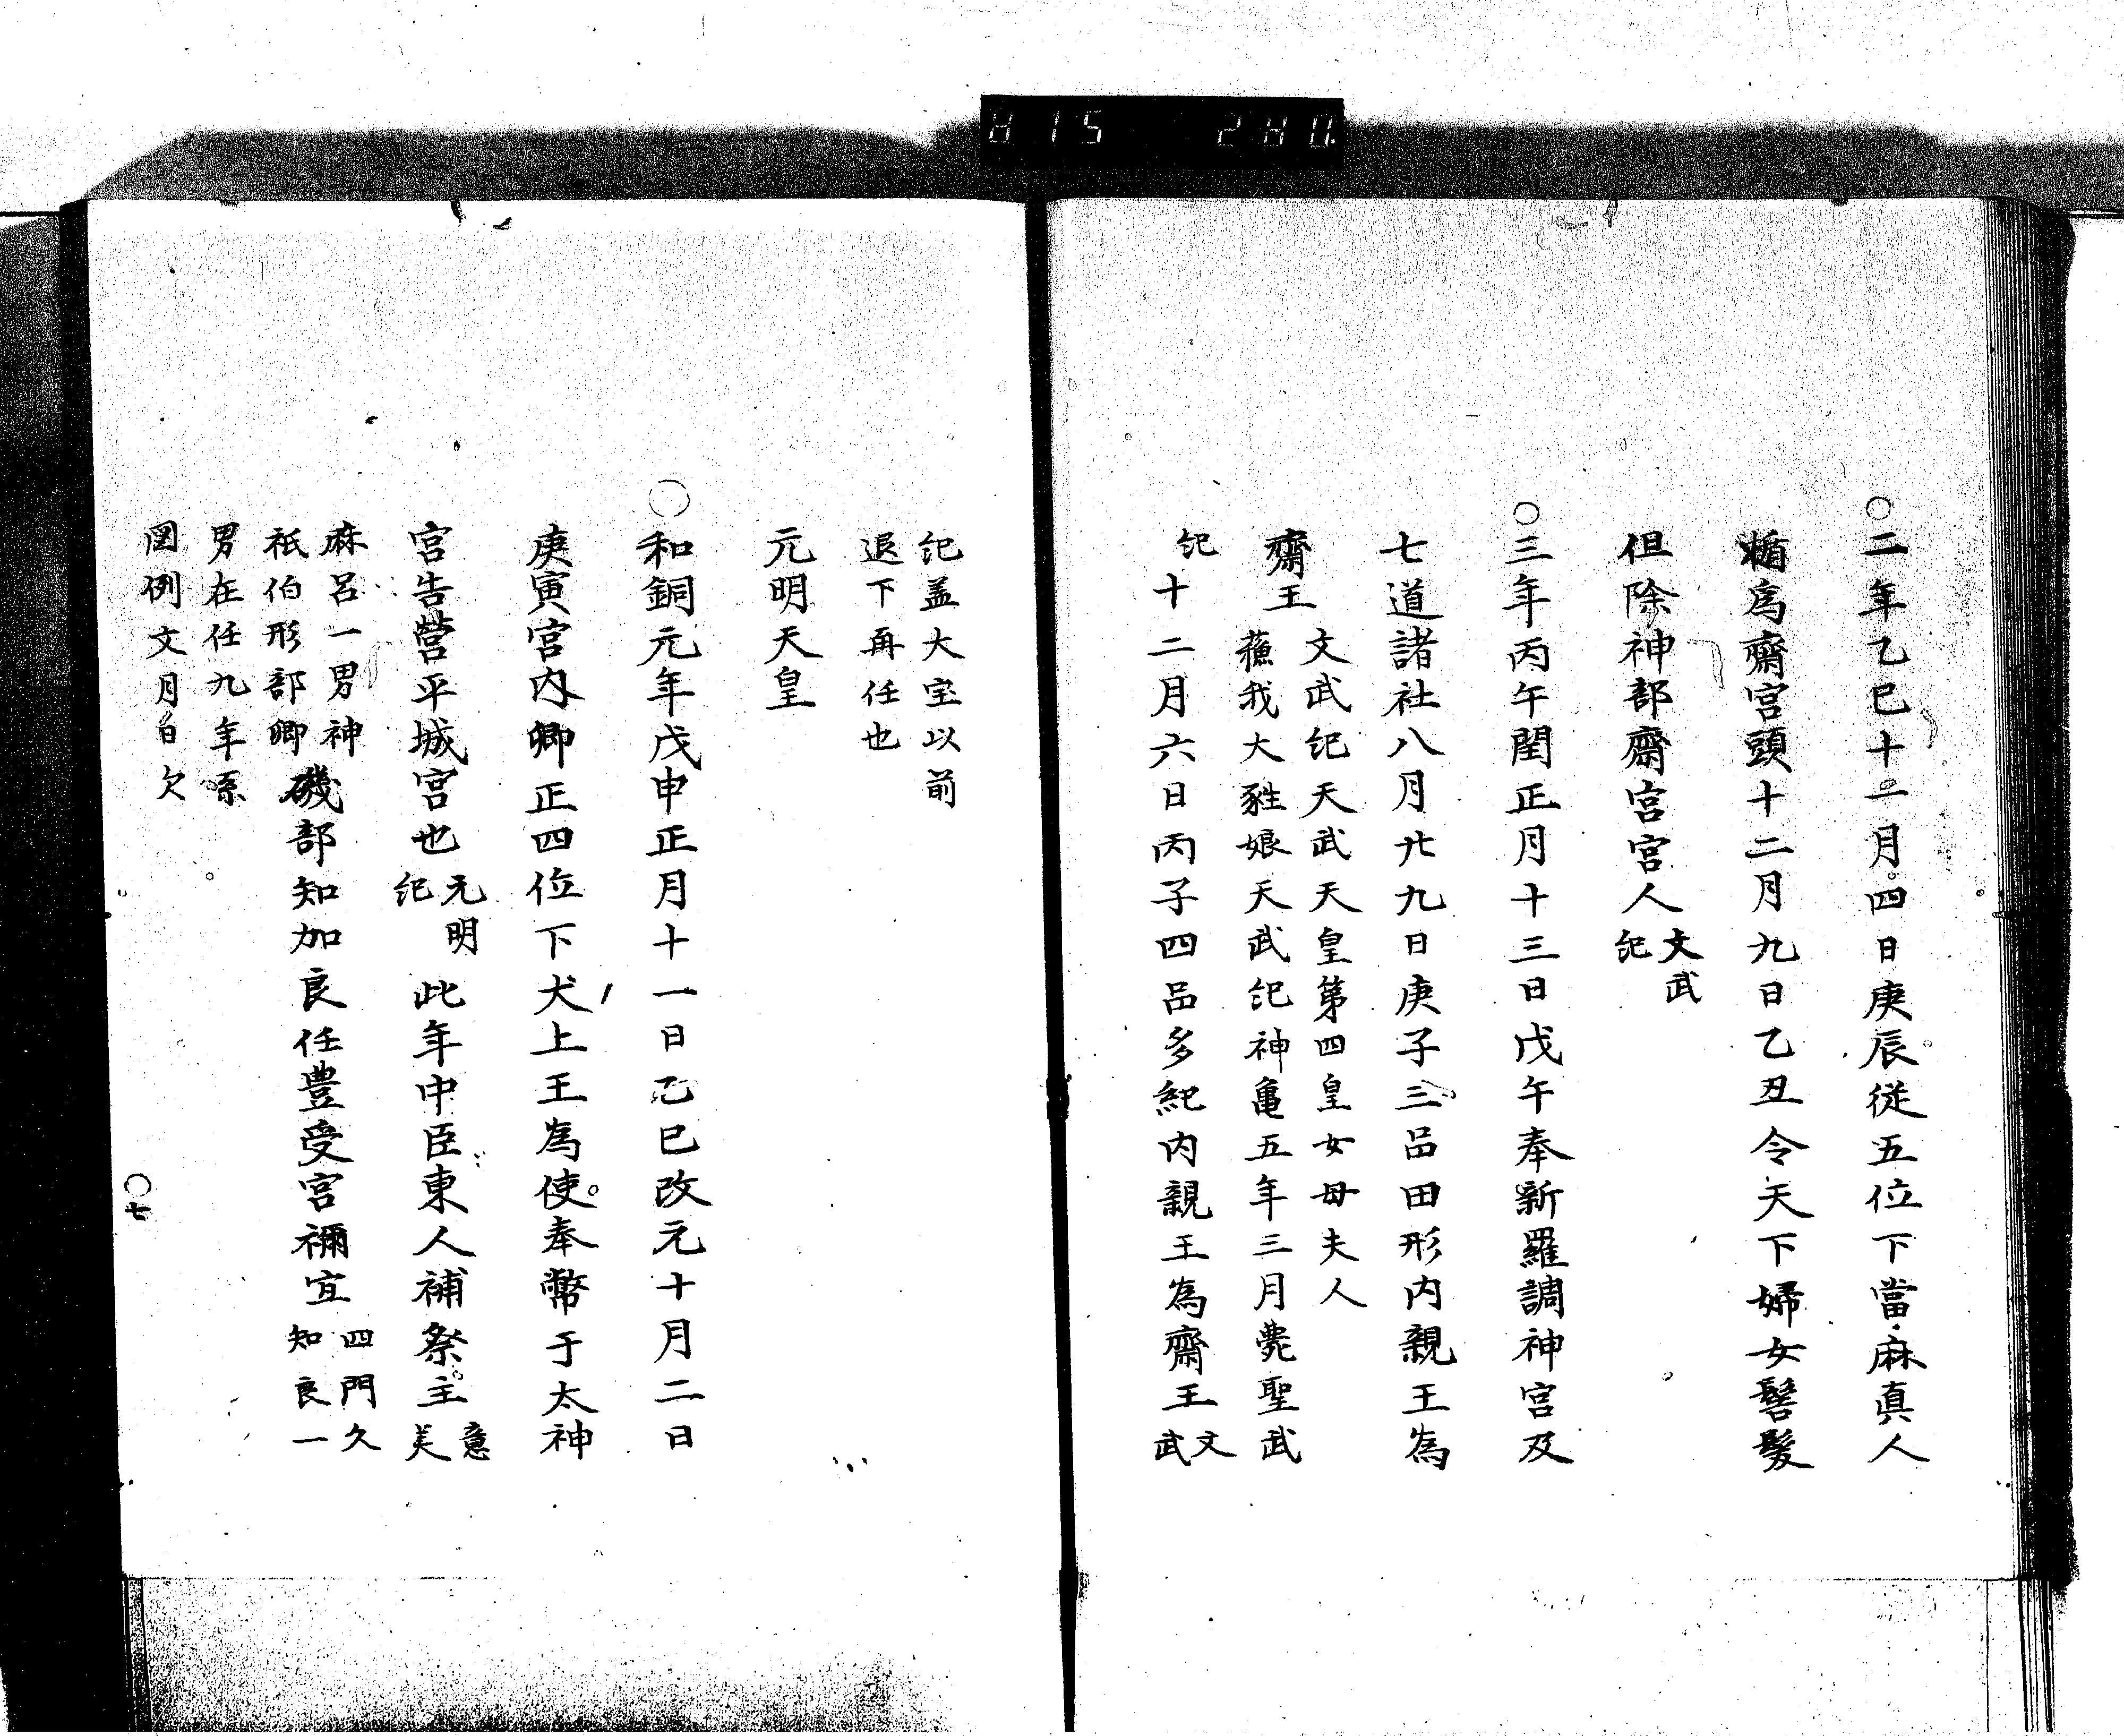 〇二年乙巳十二月四日庚辰従五位下當麻真人
楯為齋宮頭十二月九日乙丑令天下婦女髻髮
但除神部齋宮宮人文武
紀
〇三年丙午閏正月十三日戊午奉新羅調神宮及
七道諸社八月廿九日庚子三品田形内親王為
齋王
文武紀天武天皇第四皇女母夫人
蘓我大䅈娘天武紀神亀五年三月薨聖武
紀
十二月六日丙子四品多紀内親王為齋王文
武
紀盖大宝以前
退下再任也
元明天皇
〇和銅元年戊申正月十一日乙巳改元十月二日
庚寅宮内卿正四位下犬上王為使奉幣于太神
宮告營平城宮也元明
紀
此年中臣東人補祭主意
美
麻呂一男神
祇伯形部卿
磯部知加良任豊受宮禰宜四門久
知良一
男在任九年系
図例文月日欠
〇七